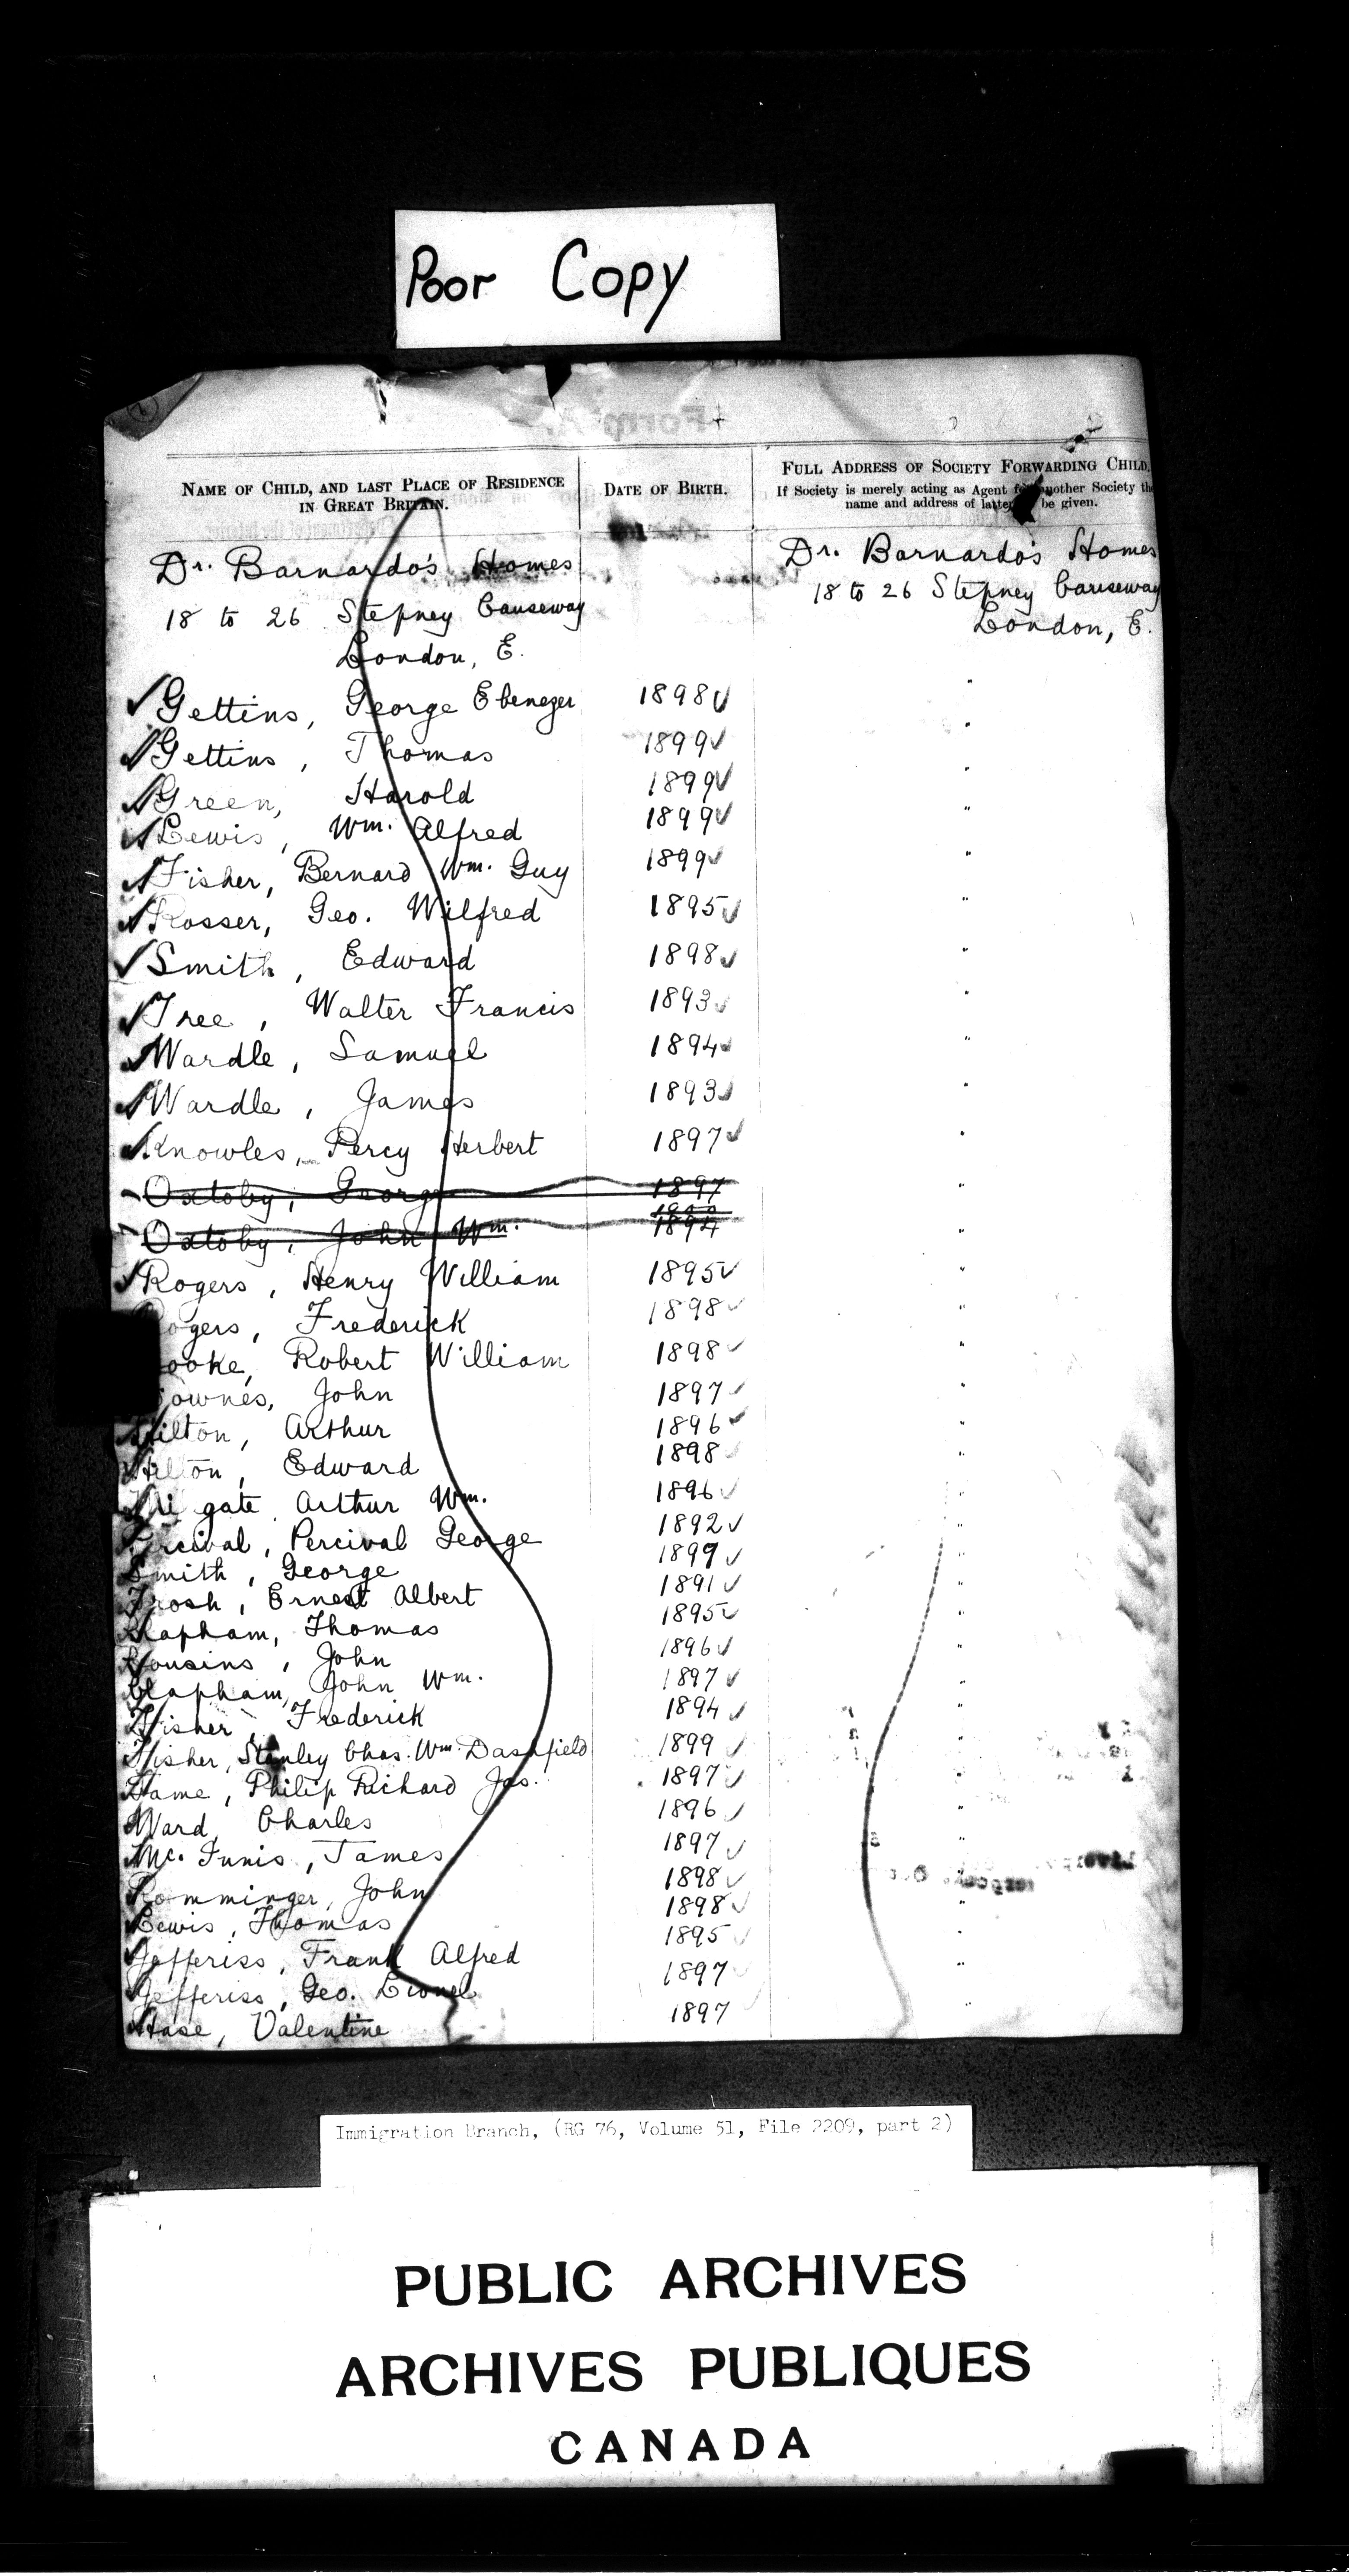 Poor Copy
NAME OF CHILD, AND LAST PLACE OF RESIDENCE
IN GREAT BRITAIN.
DATE OF BIRTH.
FULL ADDRESS OF SOCIETY FORWARDING CHILD.
If Society is merely acting as Agent for another Society the
name and address of latter be given.
Dr. Barnardo's Homes
18 to 26 Stepney Causeway
London, E.
Dr. Barnardo's Homes
18 to 26 Stepney Causeway
London, E.
Gettins, George Ebenezer 1898 "
Gettins, Thomas 1899 "
Green, Harold 1899 "
Lewis, Wm. Alfred 1899 "
Fisher, Bernard Wm. Guy 1899 "
Rosser, Geo. Wilfred 1895 "
Smith, Edward 1898 "
Tree, Walter Francis 1893 "
Wardle, Samuel 1894 "
Wardle, James 1893 "
Knowles, Percy Herbert 1897 "
Oxtoby, George 1897 "
Oxtoby, John Wm. 1894 "
Rogers, Henry William 1895 "
Rogers, Frederick 1898 "
Robert William 1898 "
John 1897 "
Hilton, Arthur 1896 "
Hilton, Edward 1898 "
gate Arthur Wm. 1896 "
Percival, Percival George 1892 "
Smith, George 1899 "
Frosh, Ernest Albert 1891 "
Clapham, Thomas 1895 "
Cousins, John 1896 "
Clapham, John Wm. 1897 "
Fisher, Frederick 1894 "
Fisher, Stanley Chas. Wm. Dashfield 1899 "
Dame, Philip Richard Jas. 1897 "
Ward, Charles 1896 "
Mc. Innis, James 1897 "
Romminger, John 1898 "
Lewis, Thomas 1898 "
Jefferiss, Frank Alfred 1895 "
Jefferiss, Geo. Lionel 1897 "
Hase, Valentine 1897 "
Immigration Branch, (RG 76, Volume 51, File 2209, part 2)
PUBLIC ARCHIVES
ARCHIVES PUBLIQUES
CANADA